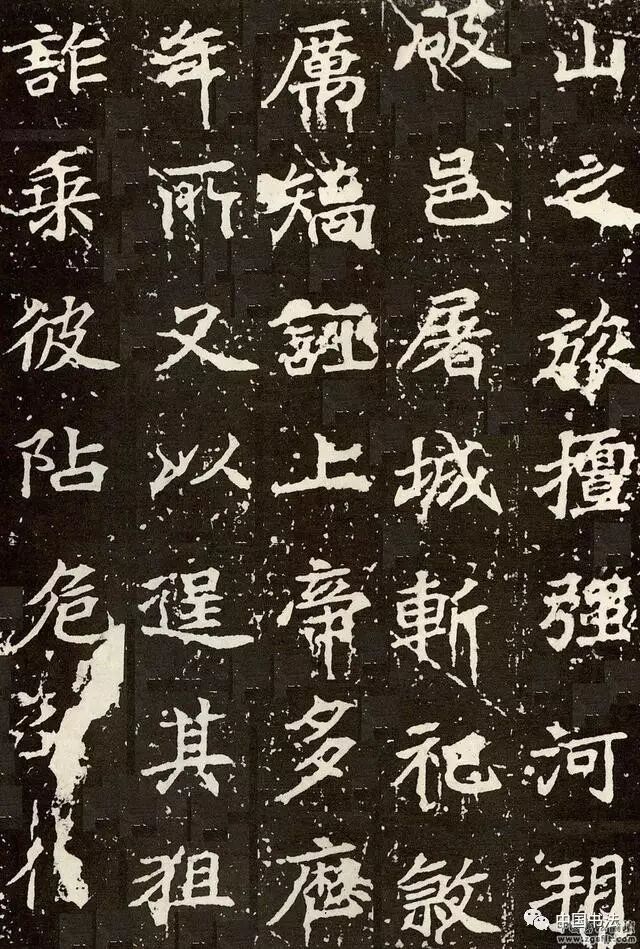 山之旅擅强河朔
破邑屠城斬祀煞
厲矯誣上帝多歷
年所又以逞其狙
詐乘彼阽危
中国书法